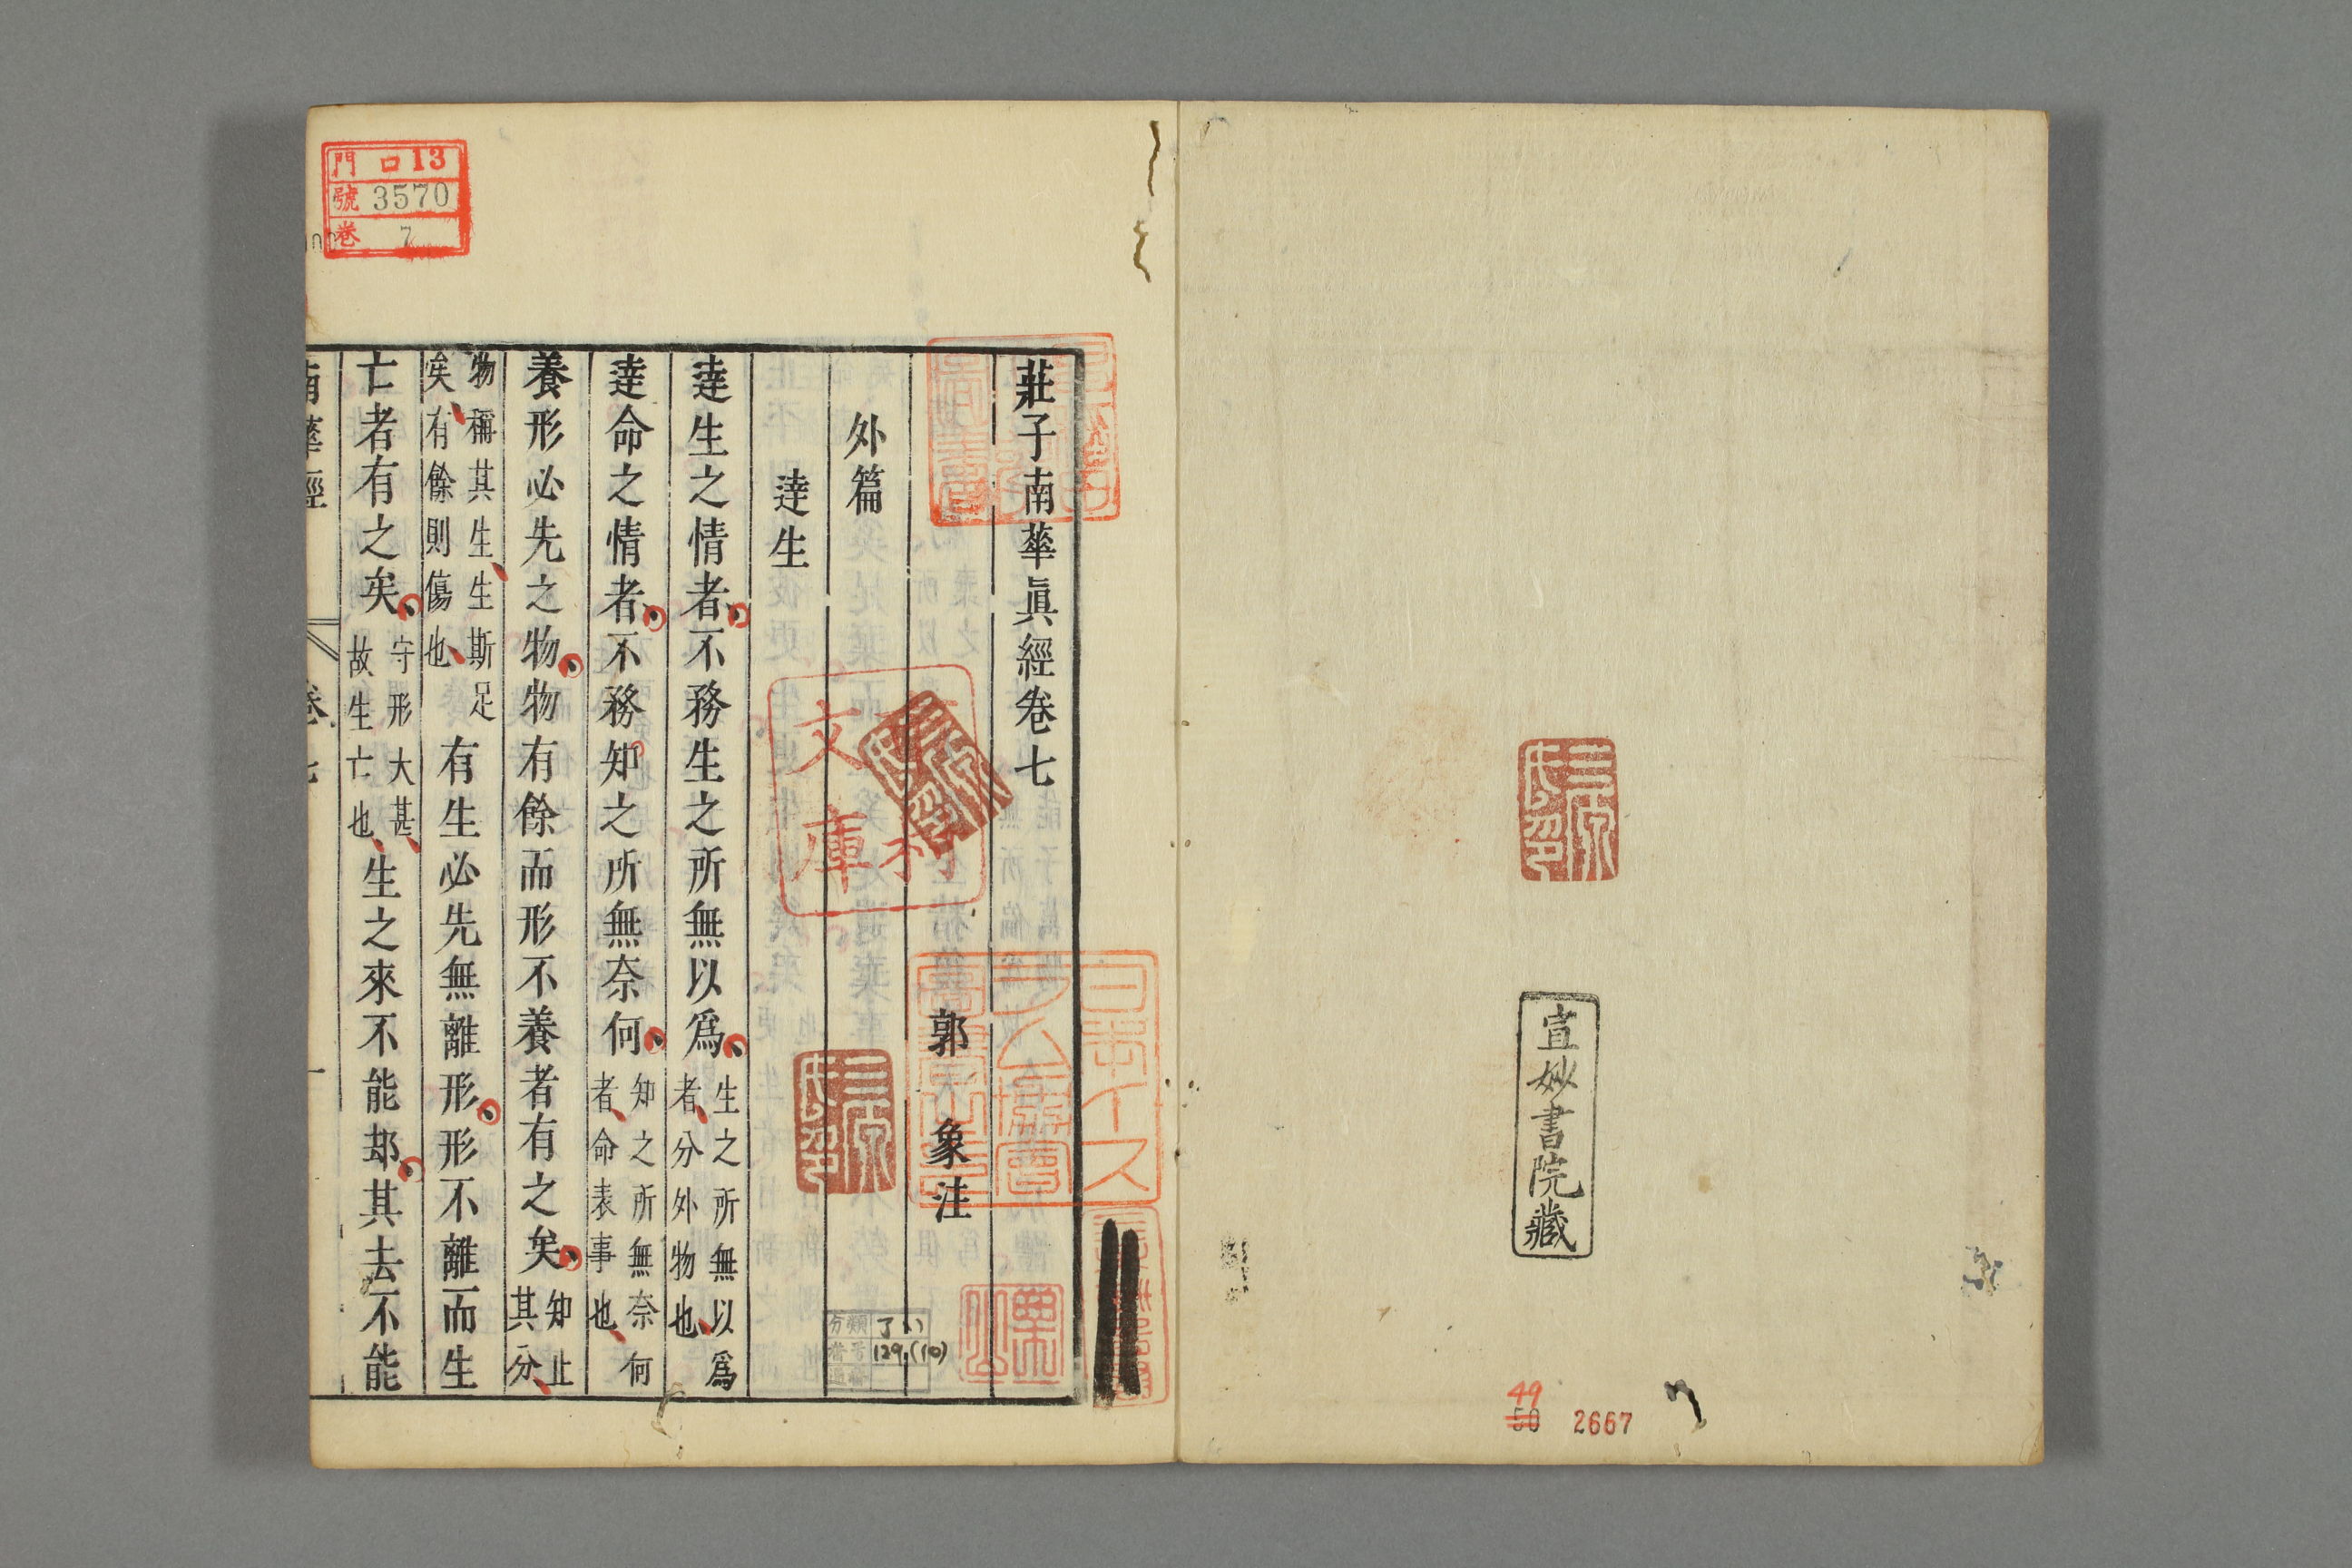 宣妙書院藏
49
50 2667
莊子南華眞經卷七
郭象注
外篇
達生
達生之情者不務生之所無以爲生之所無以爲者分外物也
達命之情者不務知之所無奈何知之所無奈何者命表事也
養形必先之物物有餘而形不養者有之矣知止其分
物稱其生生斯足矣有餘則傷也有生必先無離形形不離而生
亡者有之矣守形大甚故生亡也生之來不能却其去不能
南華經 卷七 一
門 口13
號 3570
卷 7
文庫
日本イスラム協會
分類
129.(10)